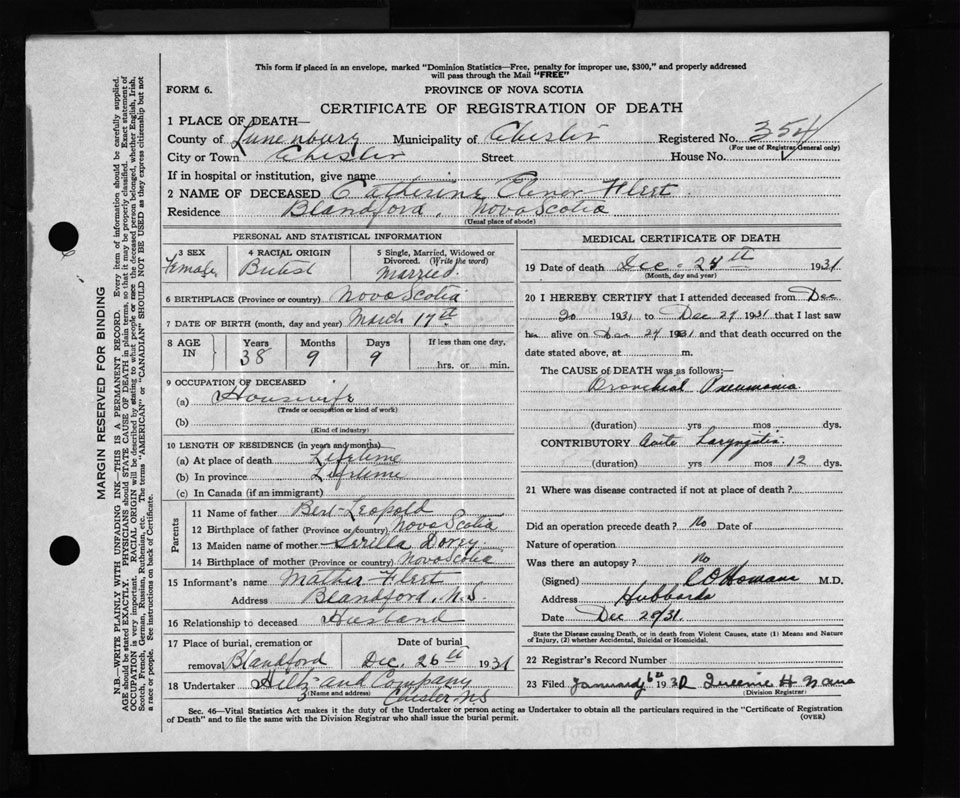 This form if placed in an envelope, marked "Dominion Statistics—Free, penalty for improper use, $300," and properly addressed
will pass through the Mail "FREE"
FORM 6. PROVINCE OF NOVA SCOTIA
CERTIFICATE OF REGISTRATION OF DEATH
1 PLACE OF DEATH—
County of Lunenburg Municipality of Chester Registered No. 354
(For use of Registrar General only)
City or Town Chester Street House No.
If in hospital or institution, give name
2 NAME OF DECEASED Catherine Elenor Fleet
Residence Blandford, Nova Scotia
(Usual place of abode)
PERSONAL AND STATISTICAL INFORMATION
3 SEX Female
4 RACIAL ORIGIN British
5 Single, Married, Widowed or Divorced. (Write the word) Married.
6 BIRTHPLACE (Province or country) Nova Scotia
7 DATE OF BIRTH (month, day and year) March 17th
8 AGE IN Years 38 Months 9 Days 9 If less than one day, hrs. or min.
9 OCCUPATION OF DECEASED
(a) Housewife
(Trade or occupation or kind of work)
(b)
(Kind of industry)
10 LENGTH OF RESIDENCE (in years and months)
(a) At place of death Lifetime
(b) In province Lifetime
(c) In Canada (if an immigrant)
Parents
11 Name of father Bert Leopold
12 Birthplace of father (Province or country) Nova Scotia
13 Maiden name of mother Dorey
14 Birthplace of mother (Province or country) Nova Scotia
15 Informant's name Mather Fleet
Address Blandford, N.S.
16 Relationship to deceased Husband
17 Place of burial, cremation or removal Blandford Date of burial Dec. 26th 1931
18 Undertaker Hiltz and Company
(Name and address) Chester N S
MEDICAL CERTIFICATE OF DEATH
19 Date of death Dec. 24th 1931
(Month, day and year)
20 I HEREBY CERTIFY that I attended deceased from Dec
20 1931 to Dec 24 1931 that I last saw
her alive on Dec 24 1931 and that death occurred on the
date stated above, at m.
The CAUSE OF DEATH was as follows:—
Bronchial Pneumonia
(duration) yrs mos dys.
CONTRIBUTORY Acute Laryngitis.
(duration) yrs mos 12 dys.
21 Where was disease contracted if not at place of death?
Did an operation precede death? no Date of
Nature of operation
Was there an autopsy? no
(Signed) M.D.
Address Hubbards
Date Dec 29/31.
State the Disease causing Death, or in death from Violent Causes, state (1) Means and Nature
of Injury, (2) whether Accidental, Suicidal or Homicidal.
22 Registrar's Record Number
23 Filed January 6th 1932 Queenie H
(Division Registrar)
Sec. 46—Vital Statistics Act makes it the duty of the Undertaker or person acting as Undertaker to obtain all the particulars required in the "Certificate of Registration
of Death" and to file the same with the Division Registrar who shall issue the burial permit. (OVER)
MARGIN RESERVED FOR BINDING
N.B.—WRITE PLAINLY WITH UNFADING INK—THIS IS A PERMANENT RECORD. Every item of information should be carefully supplied.
AGE should be stated EXACTLY. PHYSICIANS should STATE CAUSE OF DEATH in plain terms, so that it may be properly classified. Exact statement of
OCCUPATION is very important. RACIAL ORIGIN will be described by stating to what people or race the deceased person belonged, whether English, Irish,
Scotch, French, German, Russian, Ruthenian, etc. The terms "AMERICAN" or "CANADIAN" SHOULD NOT BE USED as they express citizenship but not
a race or people. See instructions on back of Certificate.